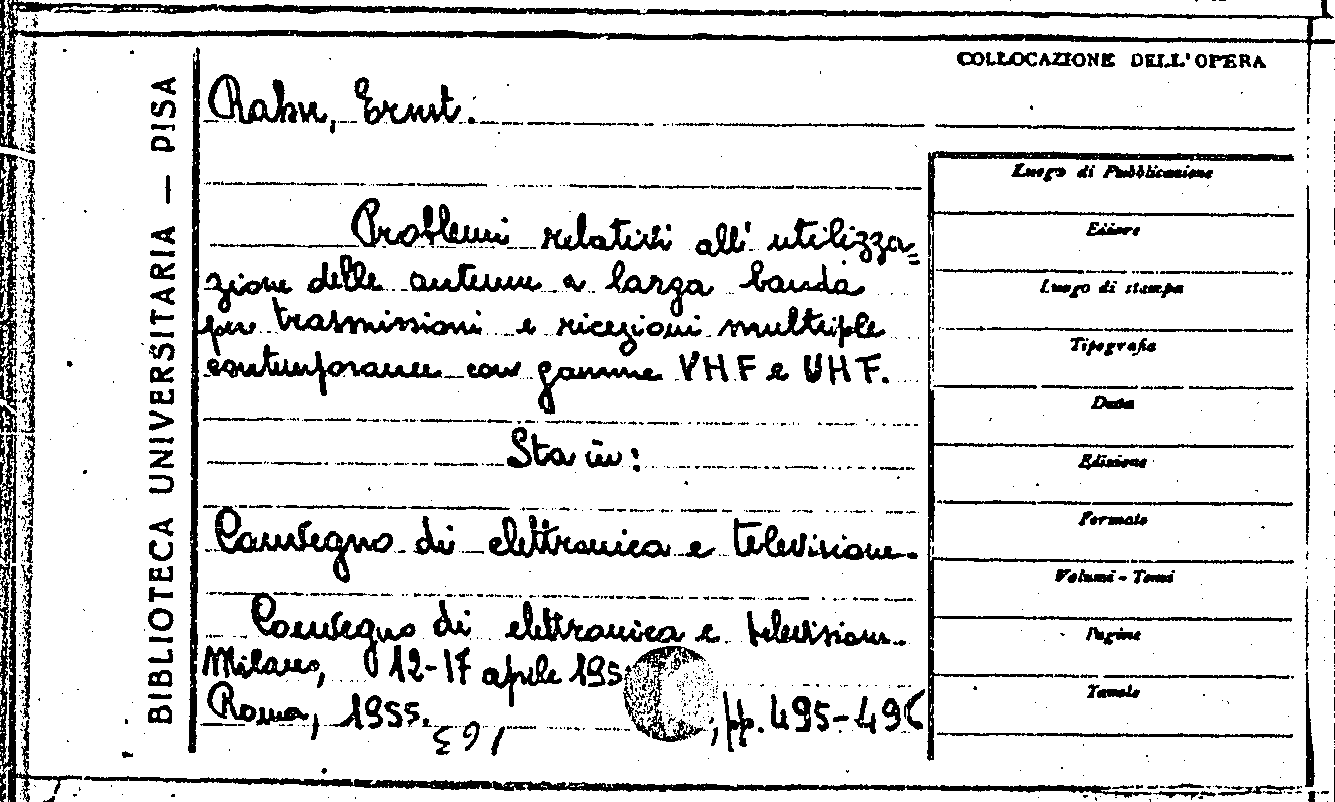 COLLOCAZIONE DELL'OPERA
BIBLIOTECA UNIVERSITARIA — PISA
Rahn, Ernst.
Problemi relativi all'utilizza=
zione delle antenne a larga banda
per trasmissioni e ricezioni multiple
contemporanee con gamme VHF e UHF.
Sta in:
Convegno di elettronica e televisione.
Convegno di elettronica e television..
Milano, 12-17 aprile 195
Roma, 1955. , pp. 495-496
163
Luogo di Pubblicazione
Editore
Luogo di stampa
Tipografia
Data
Edizione
Formato
Volumi - Tomi
Pagine
Tavole